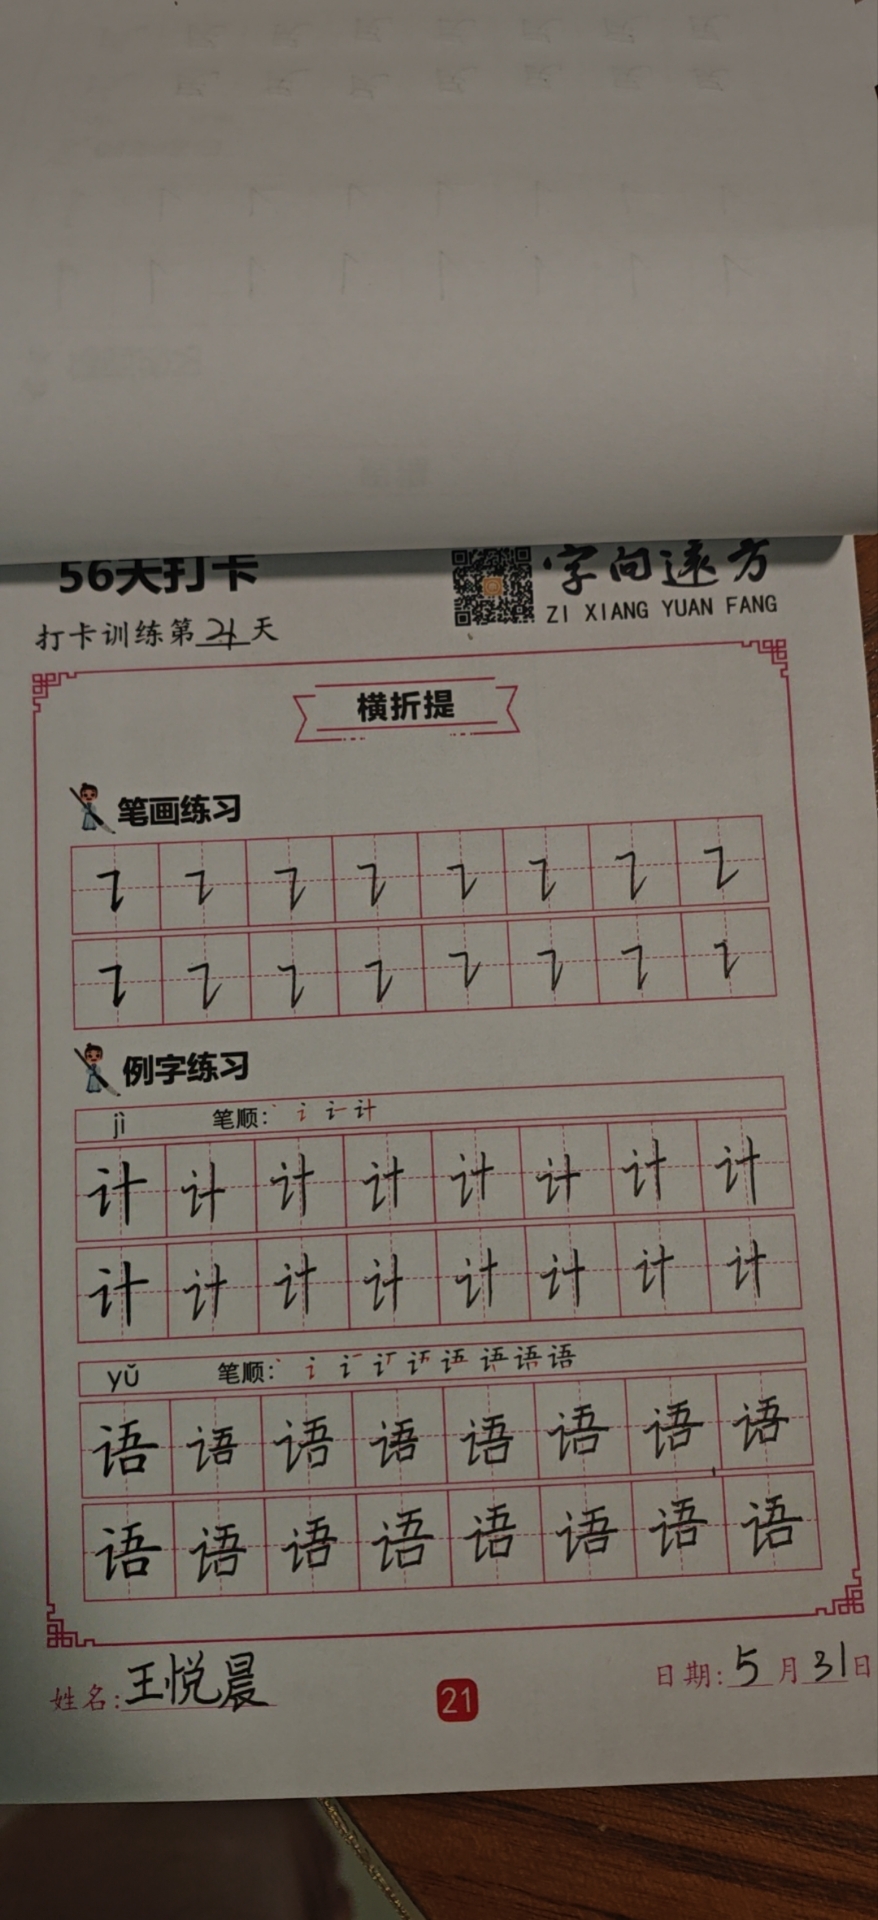 56天打卡
字向远方
ZI XIANG YUAN FANG
打卡训练第21天
横折提
笔画练习
例字练习
jì 笔顺: 计
计 计 计 计 计 计 计 计
计 计 计 计 计 计 计 计
yǔ 笔顺: 语 语 语
语 语 语 语 语 语 语 语
语 语 语 语 语 语 语 语
姓名:王悦晨
21
日期:5月31日